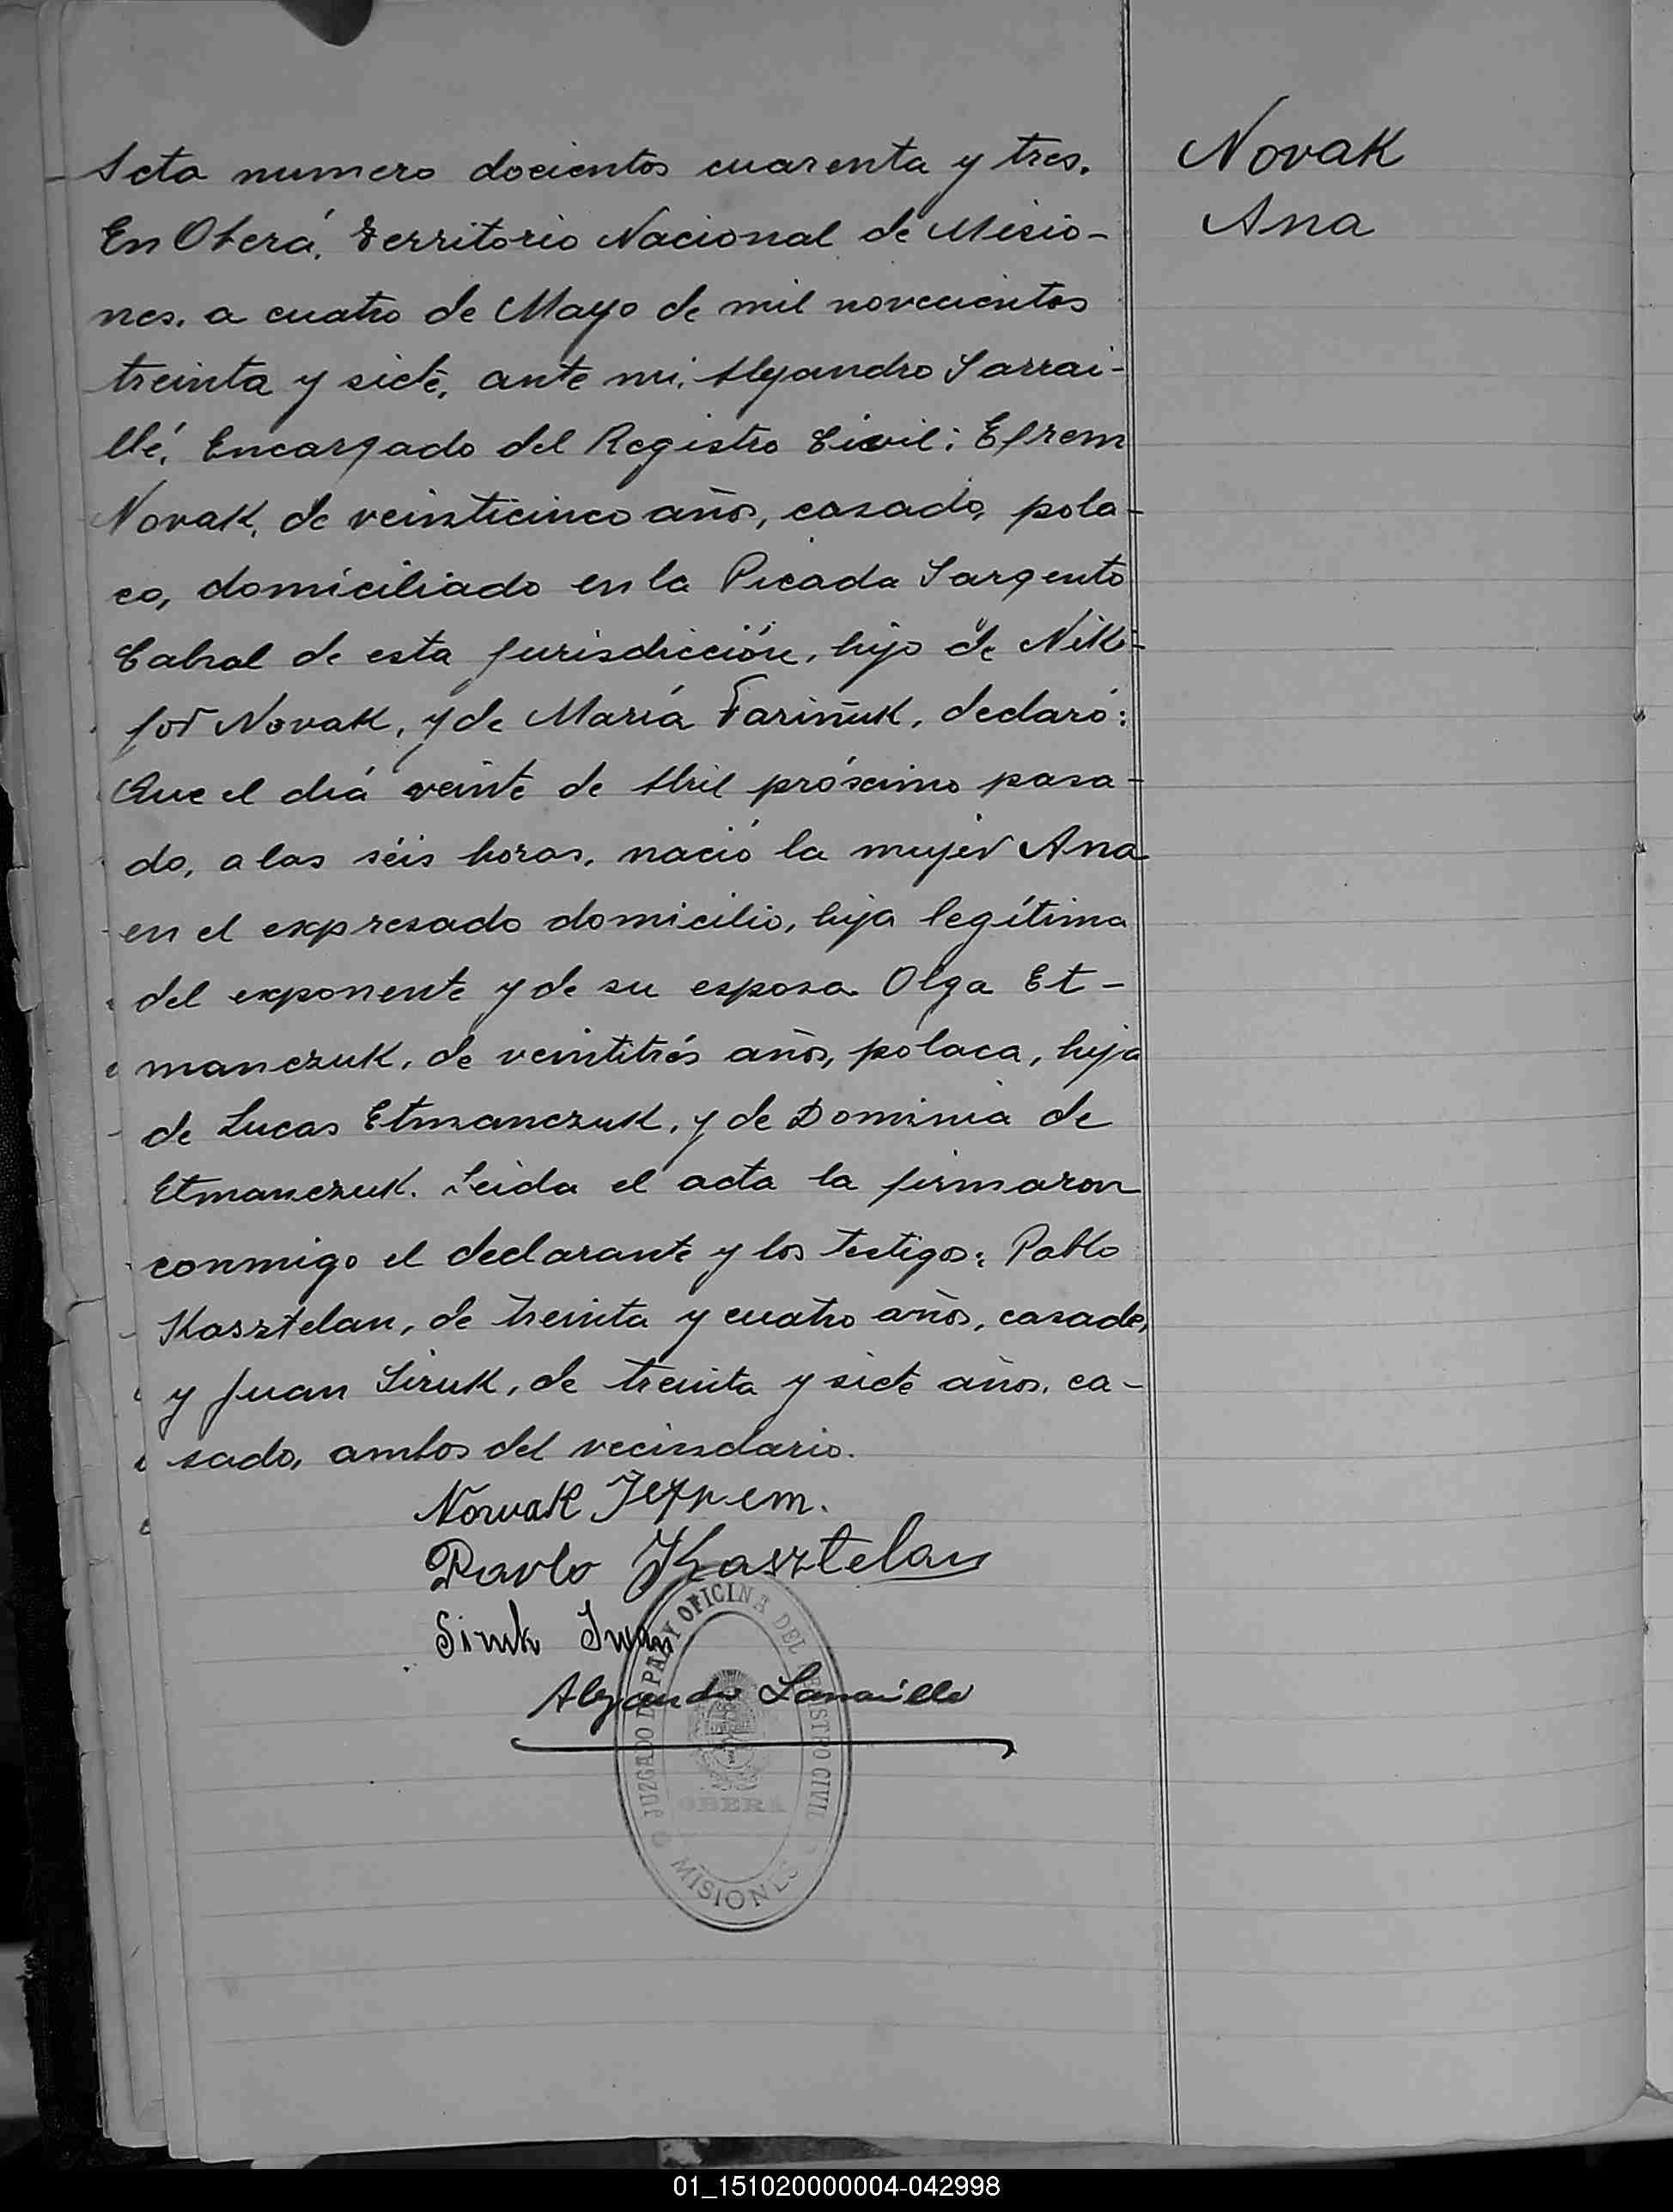 Acta numero docientos cuarenta y tres.
En Oberá, Territorio Nacional de Misio-
nes, a cuatro de Mayo de mil novecientos
treinta y siete, ante mi, Alejandro Sarrai-
llé, Encargado del Registro Civil: Efrem
Novak, de veinticinco años, casado, pola-
co, domiciliado en la Picada Sargento
Cabral de esta jurisdicción, hijo de Niki-
for Novak, y de María Fariñuk, declaró:
Que el día veinte de Abril próximo pasa-
do, a las séis horas, nació la mujer Ana
en el expresado domicilio, hija legítima
del exponente y de su esposa Olga Et-
manczuk, de veintitrés años, polaca, hija
de Lucas Etmanczuk, y de Dominia de
Etmanczuk. Leida el acta la firmaron
conmigo el declarante y los testigos: Pablo
Kasztelan, de treinta y cuatro años, casado,
y Juan Siruk, de treinta y siete años, ca-
sado, ambos del vecindario.
Novak
Ana
Nowak Jefrem.
Pavlo Kasztelan
Siruk Iwan
Alejandro Sarraille
JUZGADO DE PAZ Y OFICINA DEL REGISTRO CIVIL
OBERA
MISIONES
01_151020000004-042998